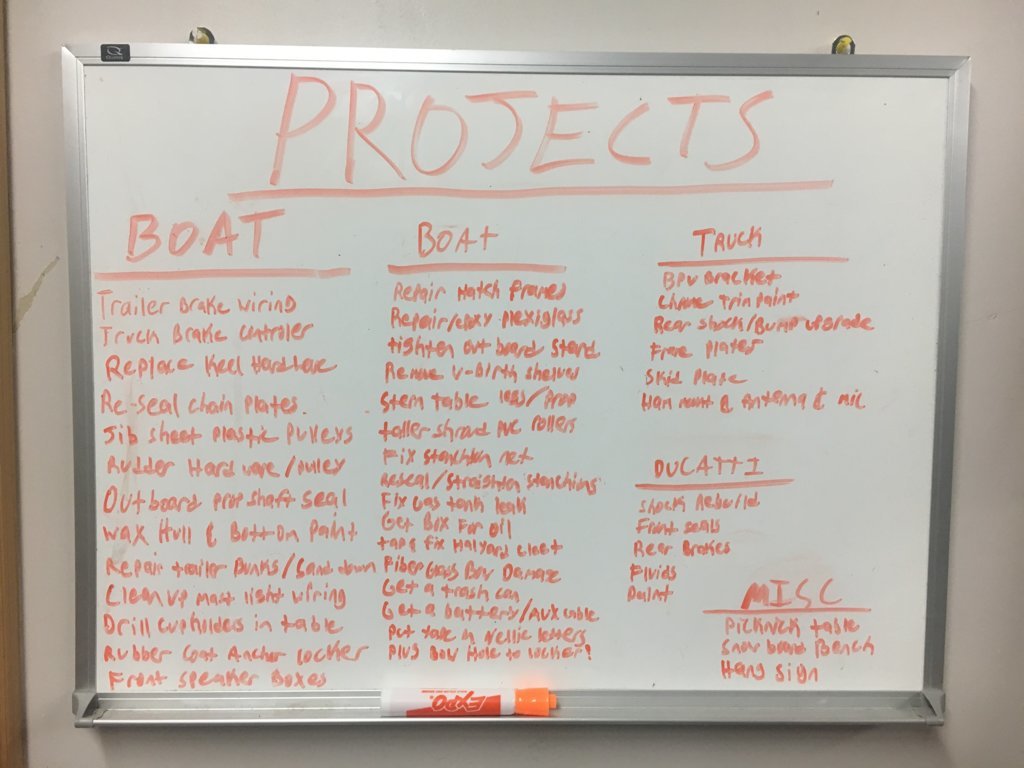 PROJECTS
BOAT
Trailer Brake wiring
Truck Brake controler
Replace Keel Hardware
Re-Seal chain plates.
Jib sheet plastic Pulleys
Rudder Hardware/pulley
Outboard prop shaft seal
Wax Hull & Bottom Paint
Repair trailer Bunks/Sand down
Clean up mast light wiring
Drill cupholders in table
Rubber Coat Anchor locker
Front Speaker Boxes
BOAT
Repair Hatch frames
Repair/epoxy plexiglass
tighten out board Stand
Remove V-Birth shelves
Stern table legs/prop
taller shroud PVC rollers
Fix stanchion net
Reseal/Straighten stanchions
Fix Gas tank leak
Get Box For oil
tap & fix Halyard cleat
FiberGlass Bow Damage
Get a trash can
Get a battery/Aux cable
Put in Nellie letters
Plug Bow Hole to locker!
TRUCK
BPV Bracket
Chrome Trim Paint
Rear Shock/Bump upgrade
Frame plates
Skid Plate
Ham mount & Antenna & mic
DUCATTI
Shock Rebuild
Front seals
Rear Brakes
Fluids
Paint
MISC
Picknick table
Snow board Bench
Hang Sign
EXPO